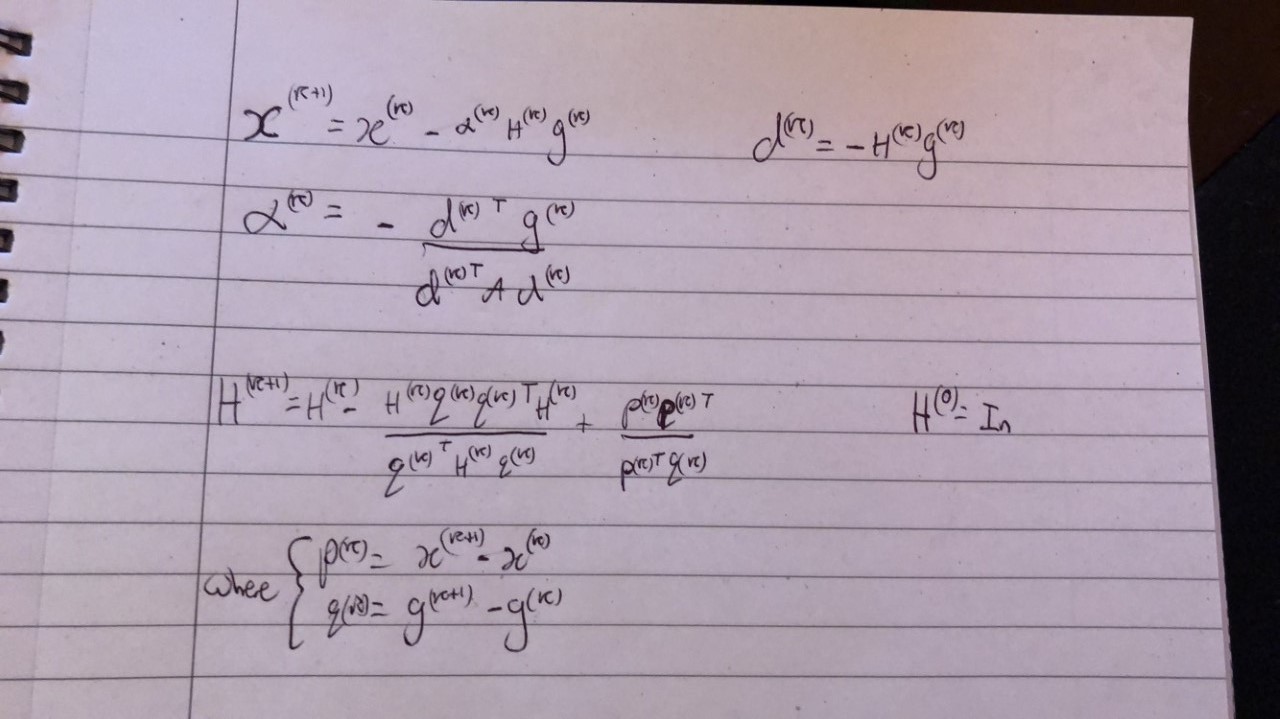 x^(k+1) = x^(k) - α^(k) H^(k) g^(k)    d^(k) = - H^(k) g^(k)
α^(k) = - d^(k)T g^(k) / d^(k)T A d^(k)
H^(k+1) = H^(k) - H^(k) q^(k) q^(k)T H^(k) / q^(k)T H^(k) q^(k) + p^(k) p^(k)T / p^(k)T q^(k)    H^(0) = In
whee { p^(k) = x^(k+1) - x^(k)
q^(k) = g^(k+1) - g^(k)